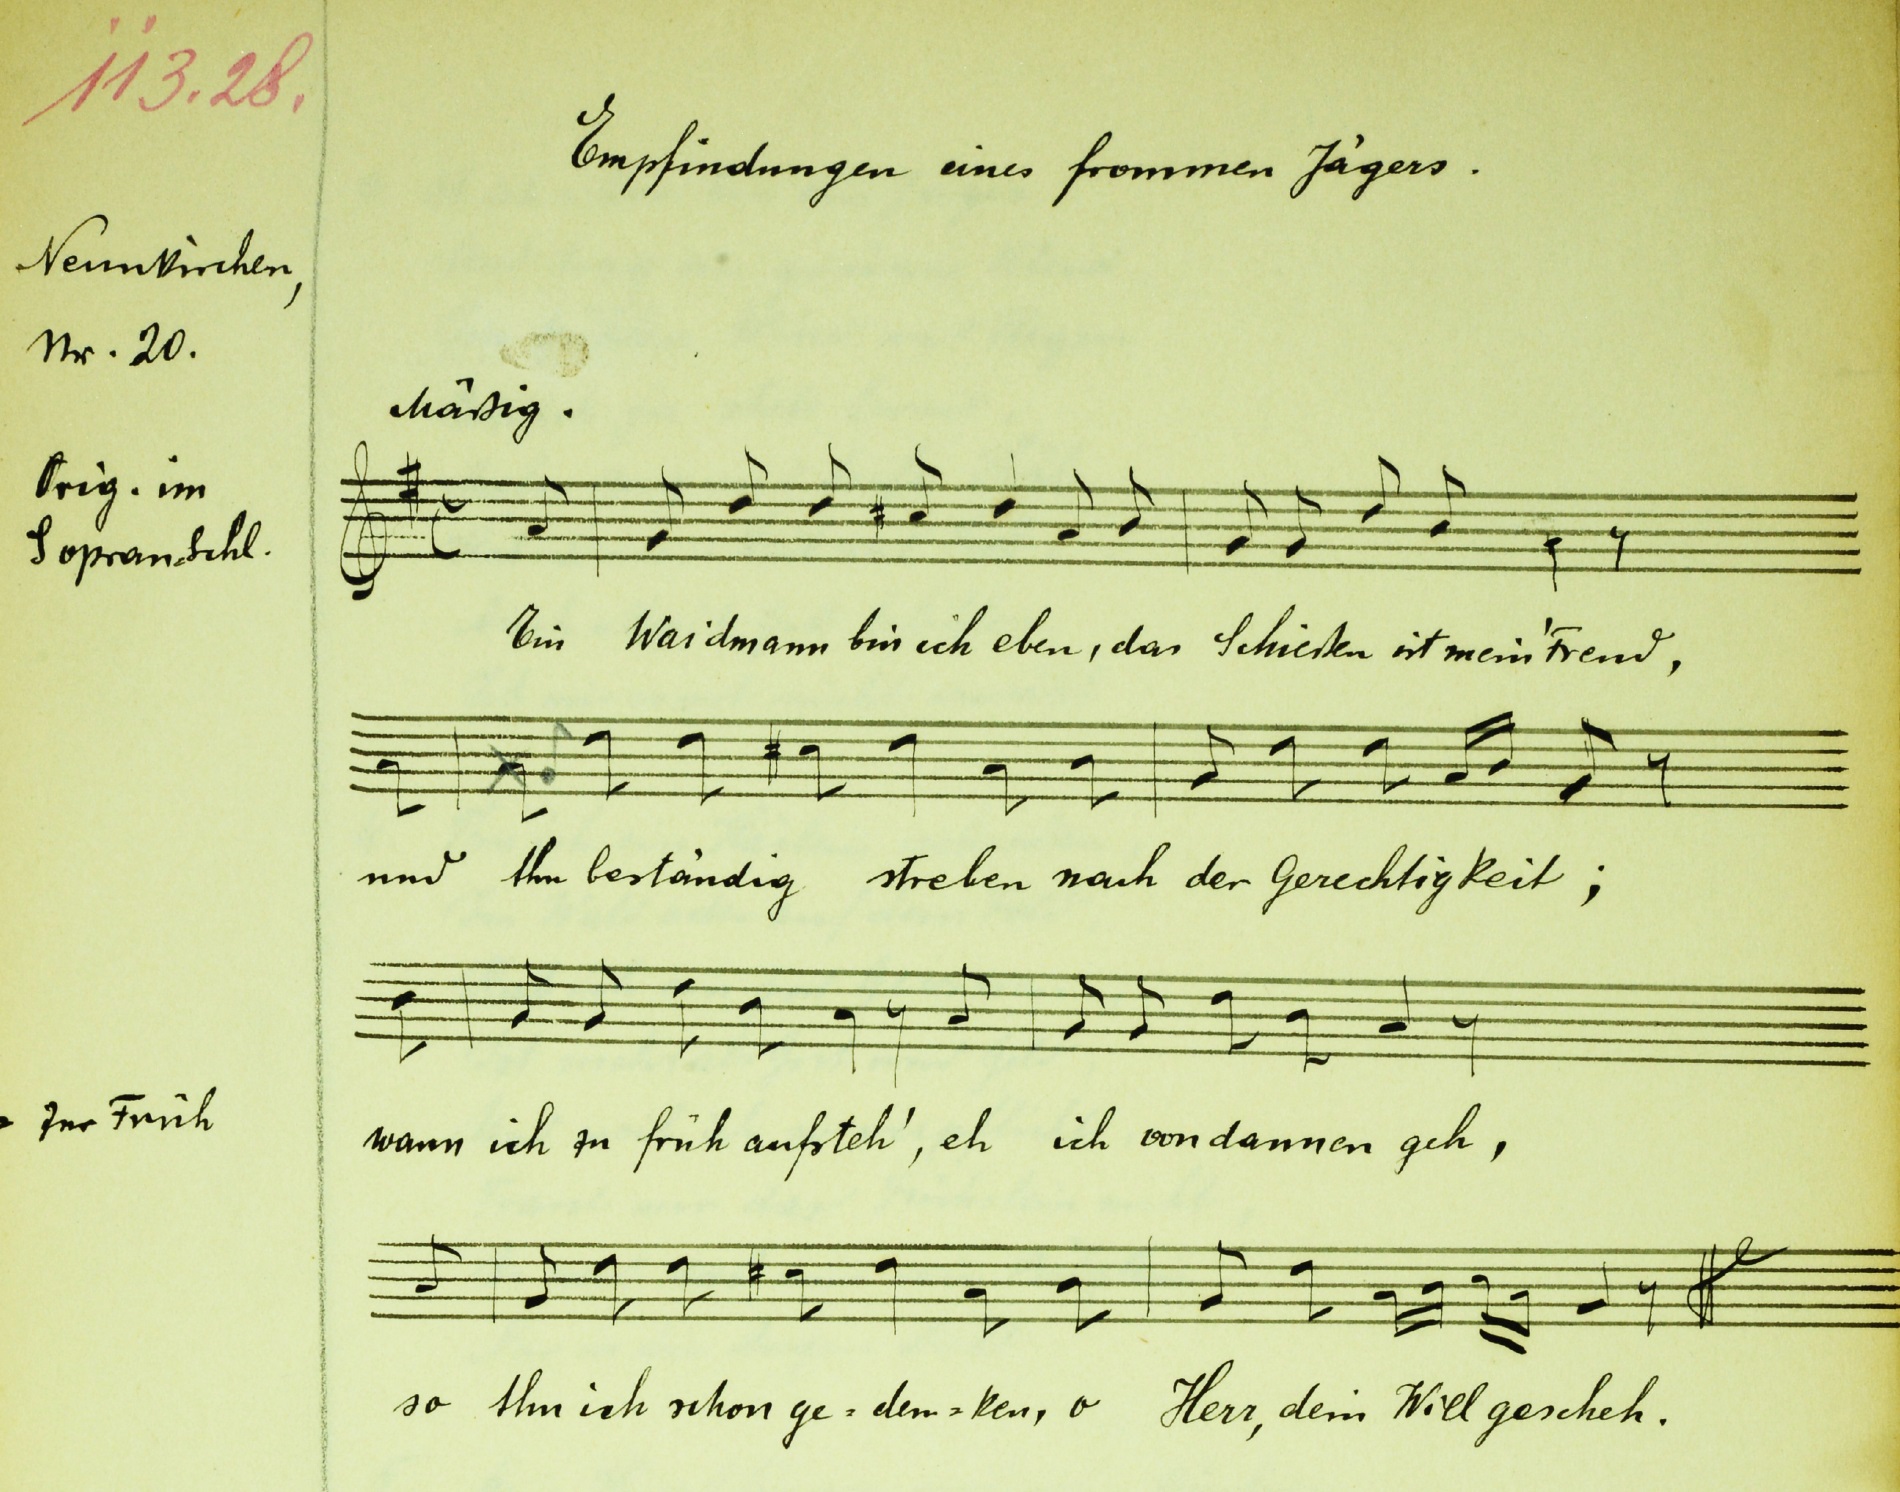 113.28.
Empfindungen eines frommen Jägers.
Neunkirchen,
Nr. 20.
Mäßig.
Orig. im
Sopran-Schl.
Ein Waidmann bin ich eben, das Schießen ist mein' Freud,
und thu beständig streben nach der Gerechtigkeit;
wann ich zu früh aufsteh', eh ich von dannen geh,
= zur Früh
so thu ich schon ge=den=ken, o Herr, dein Will gescheh.